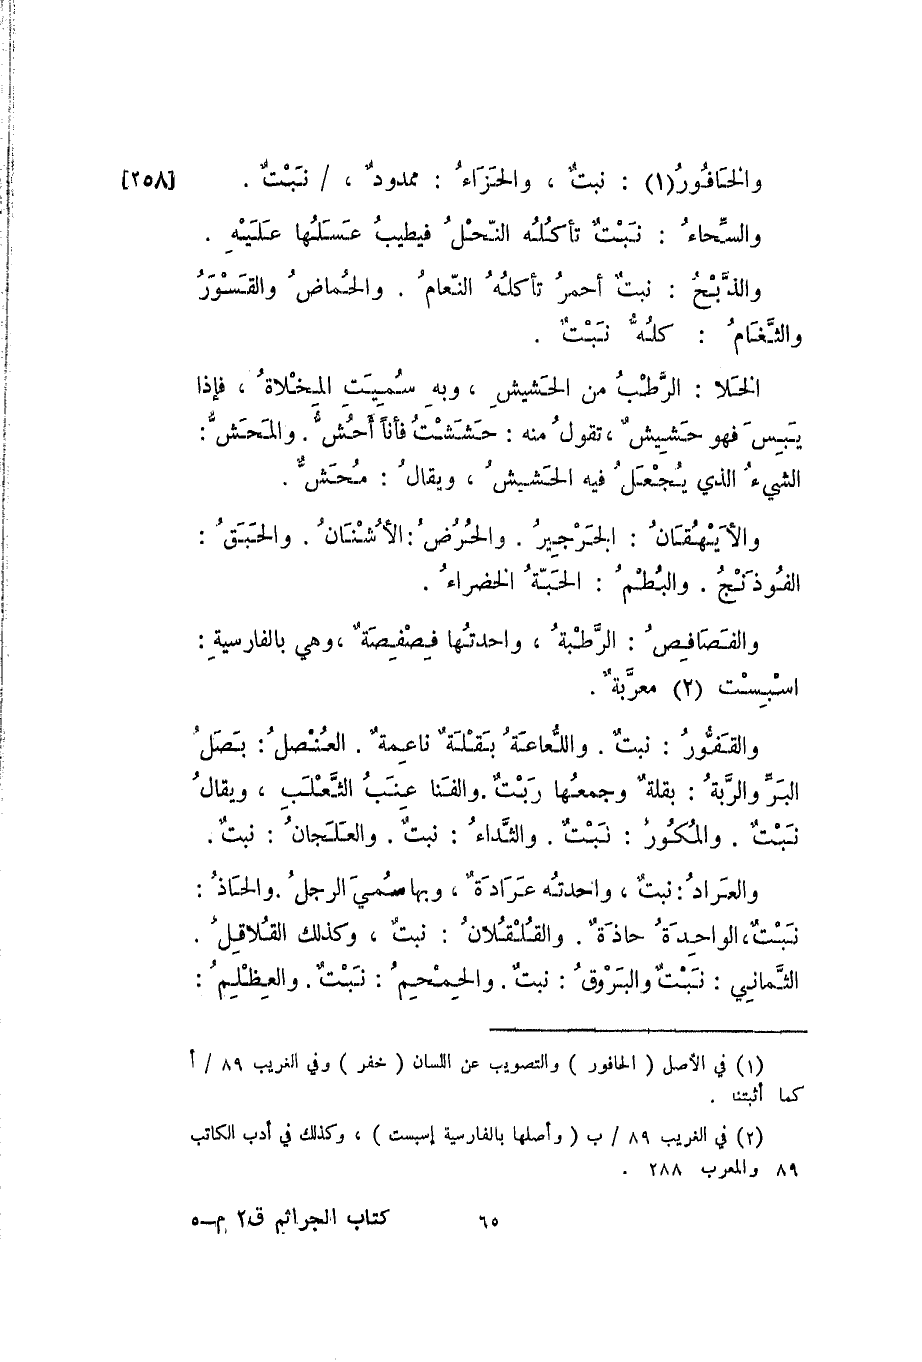 والخَافُورُ(١) : نبتٌ ، والحَزَاءُ : ممدودٌ ، / نَبْتٌ . [٢٥٨]
والسِّحاءُ : نَبْتٌ تأكُلُه النّحْلُ فيطيبُ عَسَلُها عَلَيْهِ .
والذُّبْحُ : نبتٌ أحمرُ تأكلُهُ النّعامُ . والحُماضُ والقَسْوَرُ
والثَّغَامُ : كلُهُّ نَبْتٌ .
الخَلا : الرَّطْبُ من الحَشيشِ ، وبهِ سُمِيَتِ المِخْلاةُ ، فإذا
يَبِسَ فهو حَشِيشٌ ، تقولُ منه : حَشَشْتُ فأناَ أَحُشُّ . والمَحَشُّ :
الشيءُ الذي يُجْعَلُ فيه الحَشيشُ ، ويقالُ : مُحَشٌّ .
والأَيْهُقَانُ : الجَرْجِيرُ . والحُرُضُ : الأُشْنَانُ . والحَبَقُ :
الفُوذَنْجُ . والبُطْمُ : الحَبّةُ الخضراءُ .
والفَصَافِصُ : الرَّطْبةُ ، واحدتُها فِصْفِصَةٌ ، وهي بالفارسيةِ :
اسْبِسْت (٢) معرَّبةٌ .
والقَفُّورُ : نبتٌ . واللُّعاعَةُ بَقْلَةٌ ناعِمةٌ . العُنْصلُ : بَصَلُ
البَرِّ والرَّبةُ : بقلةٌ وجمعُها رَبَتٌ . والفَنا عِنَبُ الثَّعْلَبِ ، ويقالُ
نَبْتٌ . والمُكُورُ : نَبْتٌ . والثُّداءُ : نبتٌ . والعَلَجانُ : نبتٌ .
والعَرادُ : نبتٌ ، واحدتُه عَرَادَةٌ ، وبها سُميَ الرجلُ . والحَاذُ :
نَبْتٌ ، الواحِدَةُ حاذَةٌ . والقُلْقُلانُ : نبتٌ ، وكذلك القُلاقِلُ .
الثَّمانِي : نَبْتٌ والبَرْوَقُ : نبتٌ . والحِمْحِمُ : نَبْتٌ . والعِظْلِمُ :
(١) في الأصل ( الحافور ) والتصويب عن اللسان ( خفر ) وفي الغريب ٨٩ / أ
كما أثبتنا .
(٢) في الغريب ٨٩ / ب ( وأصلها بالفارسية إسبست ) ، وكذلك في أدب الكاتب
٨٩ والمعرب ٢٨٨ .
٦٥ كتاب الجراثيم ق٢ م–٥